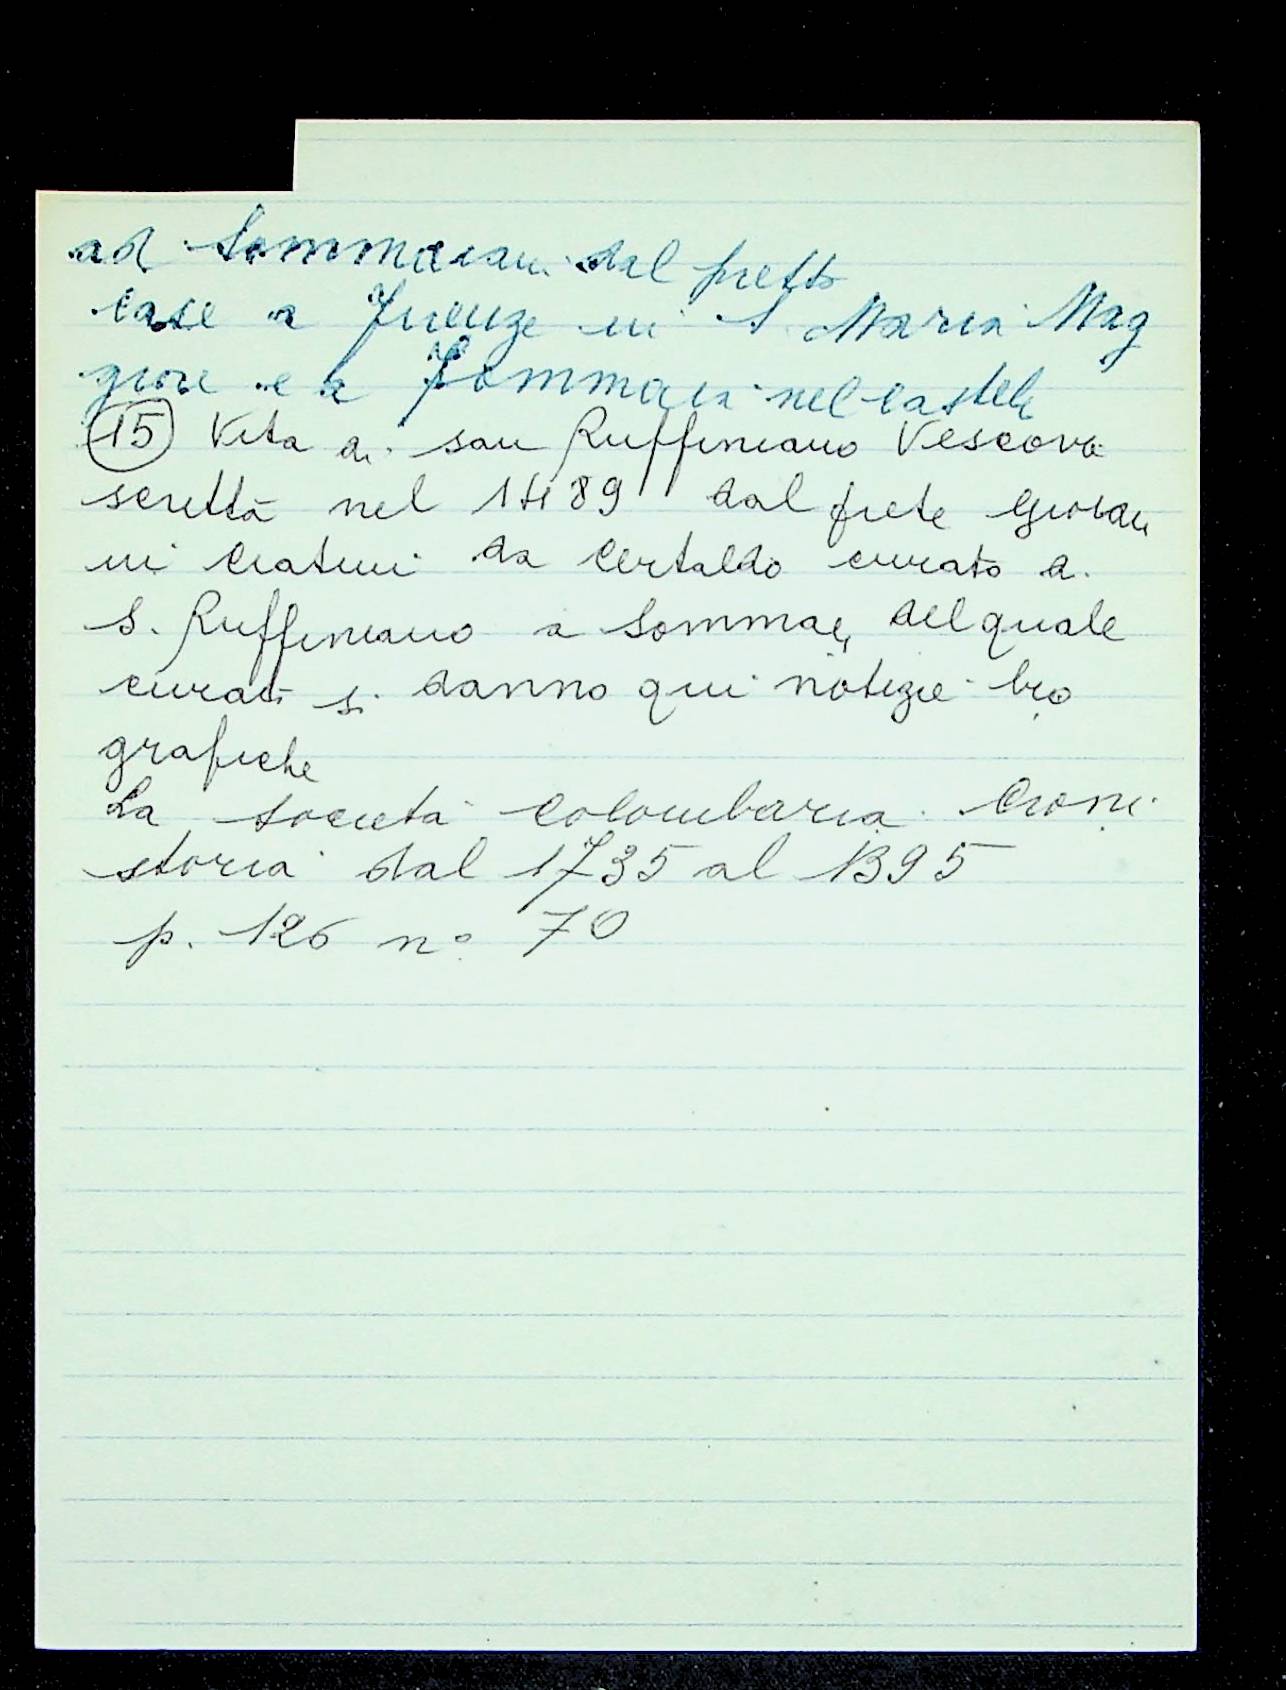 ad Sommaiani dal pretto
case a Firenze in S. Maria Mag
giore e a Sommaia nel castello
(15) Vita di san Ruffiniano Vescovo
scritta nel 1489 dal prete Giovan
ni Cratini da Certaldo curato di
S. Ruffiniano a Sommaia, del quale
curato si danno qui notizie bio
grafiche
La società Colombaria. Croni
storia dal 1735 al 1895
p. 126 n° 70